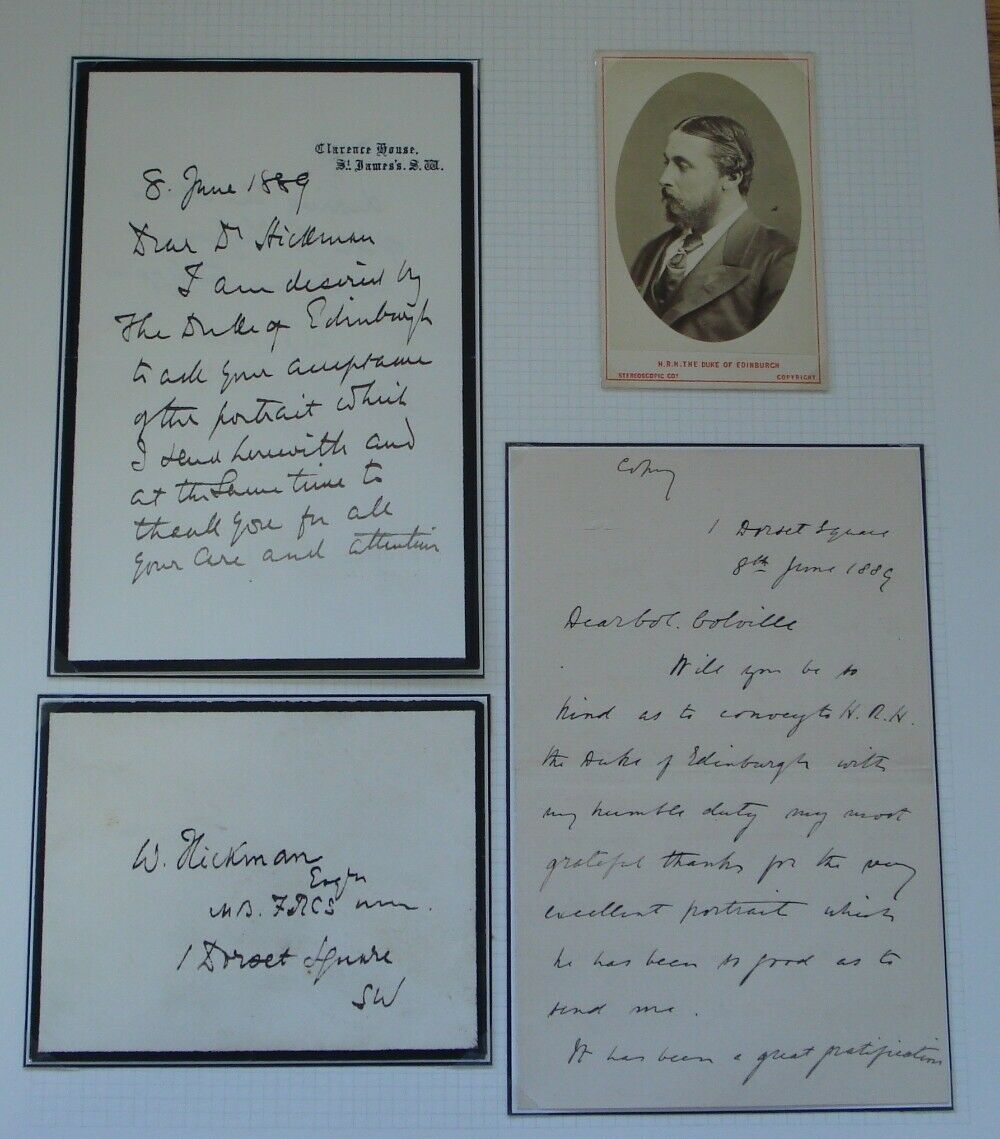 Clarence House.
St. James's. S.W.
8. June 1889
Dear Dr Hickman
I am desired by
the Duke of Edinburgh
to ask your acceptance
of the portrait which
I send herewith and
at the same time to
thank you for all
your care and attention
H.R.H. THE DUKE OF EDINBURGH
STEREOSCOPIC COY
COPYRIGHT
W. Hickman
Esqre
M.B. FRCS
1 Dorset Square
SW
Copy
1 Dorset Square
8th June 1889
Dear Col. Colville
Will you be so
kind as to convey to H.R.H.
the Duke of Edinburgh with
my humble duty my most
grateful thanks for the very
excellent portrait which
he has been so good as to
send me.
It has been a great gratification